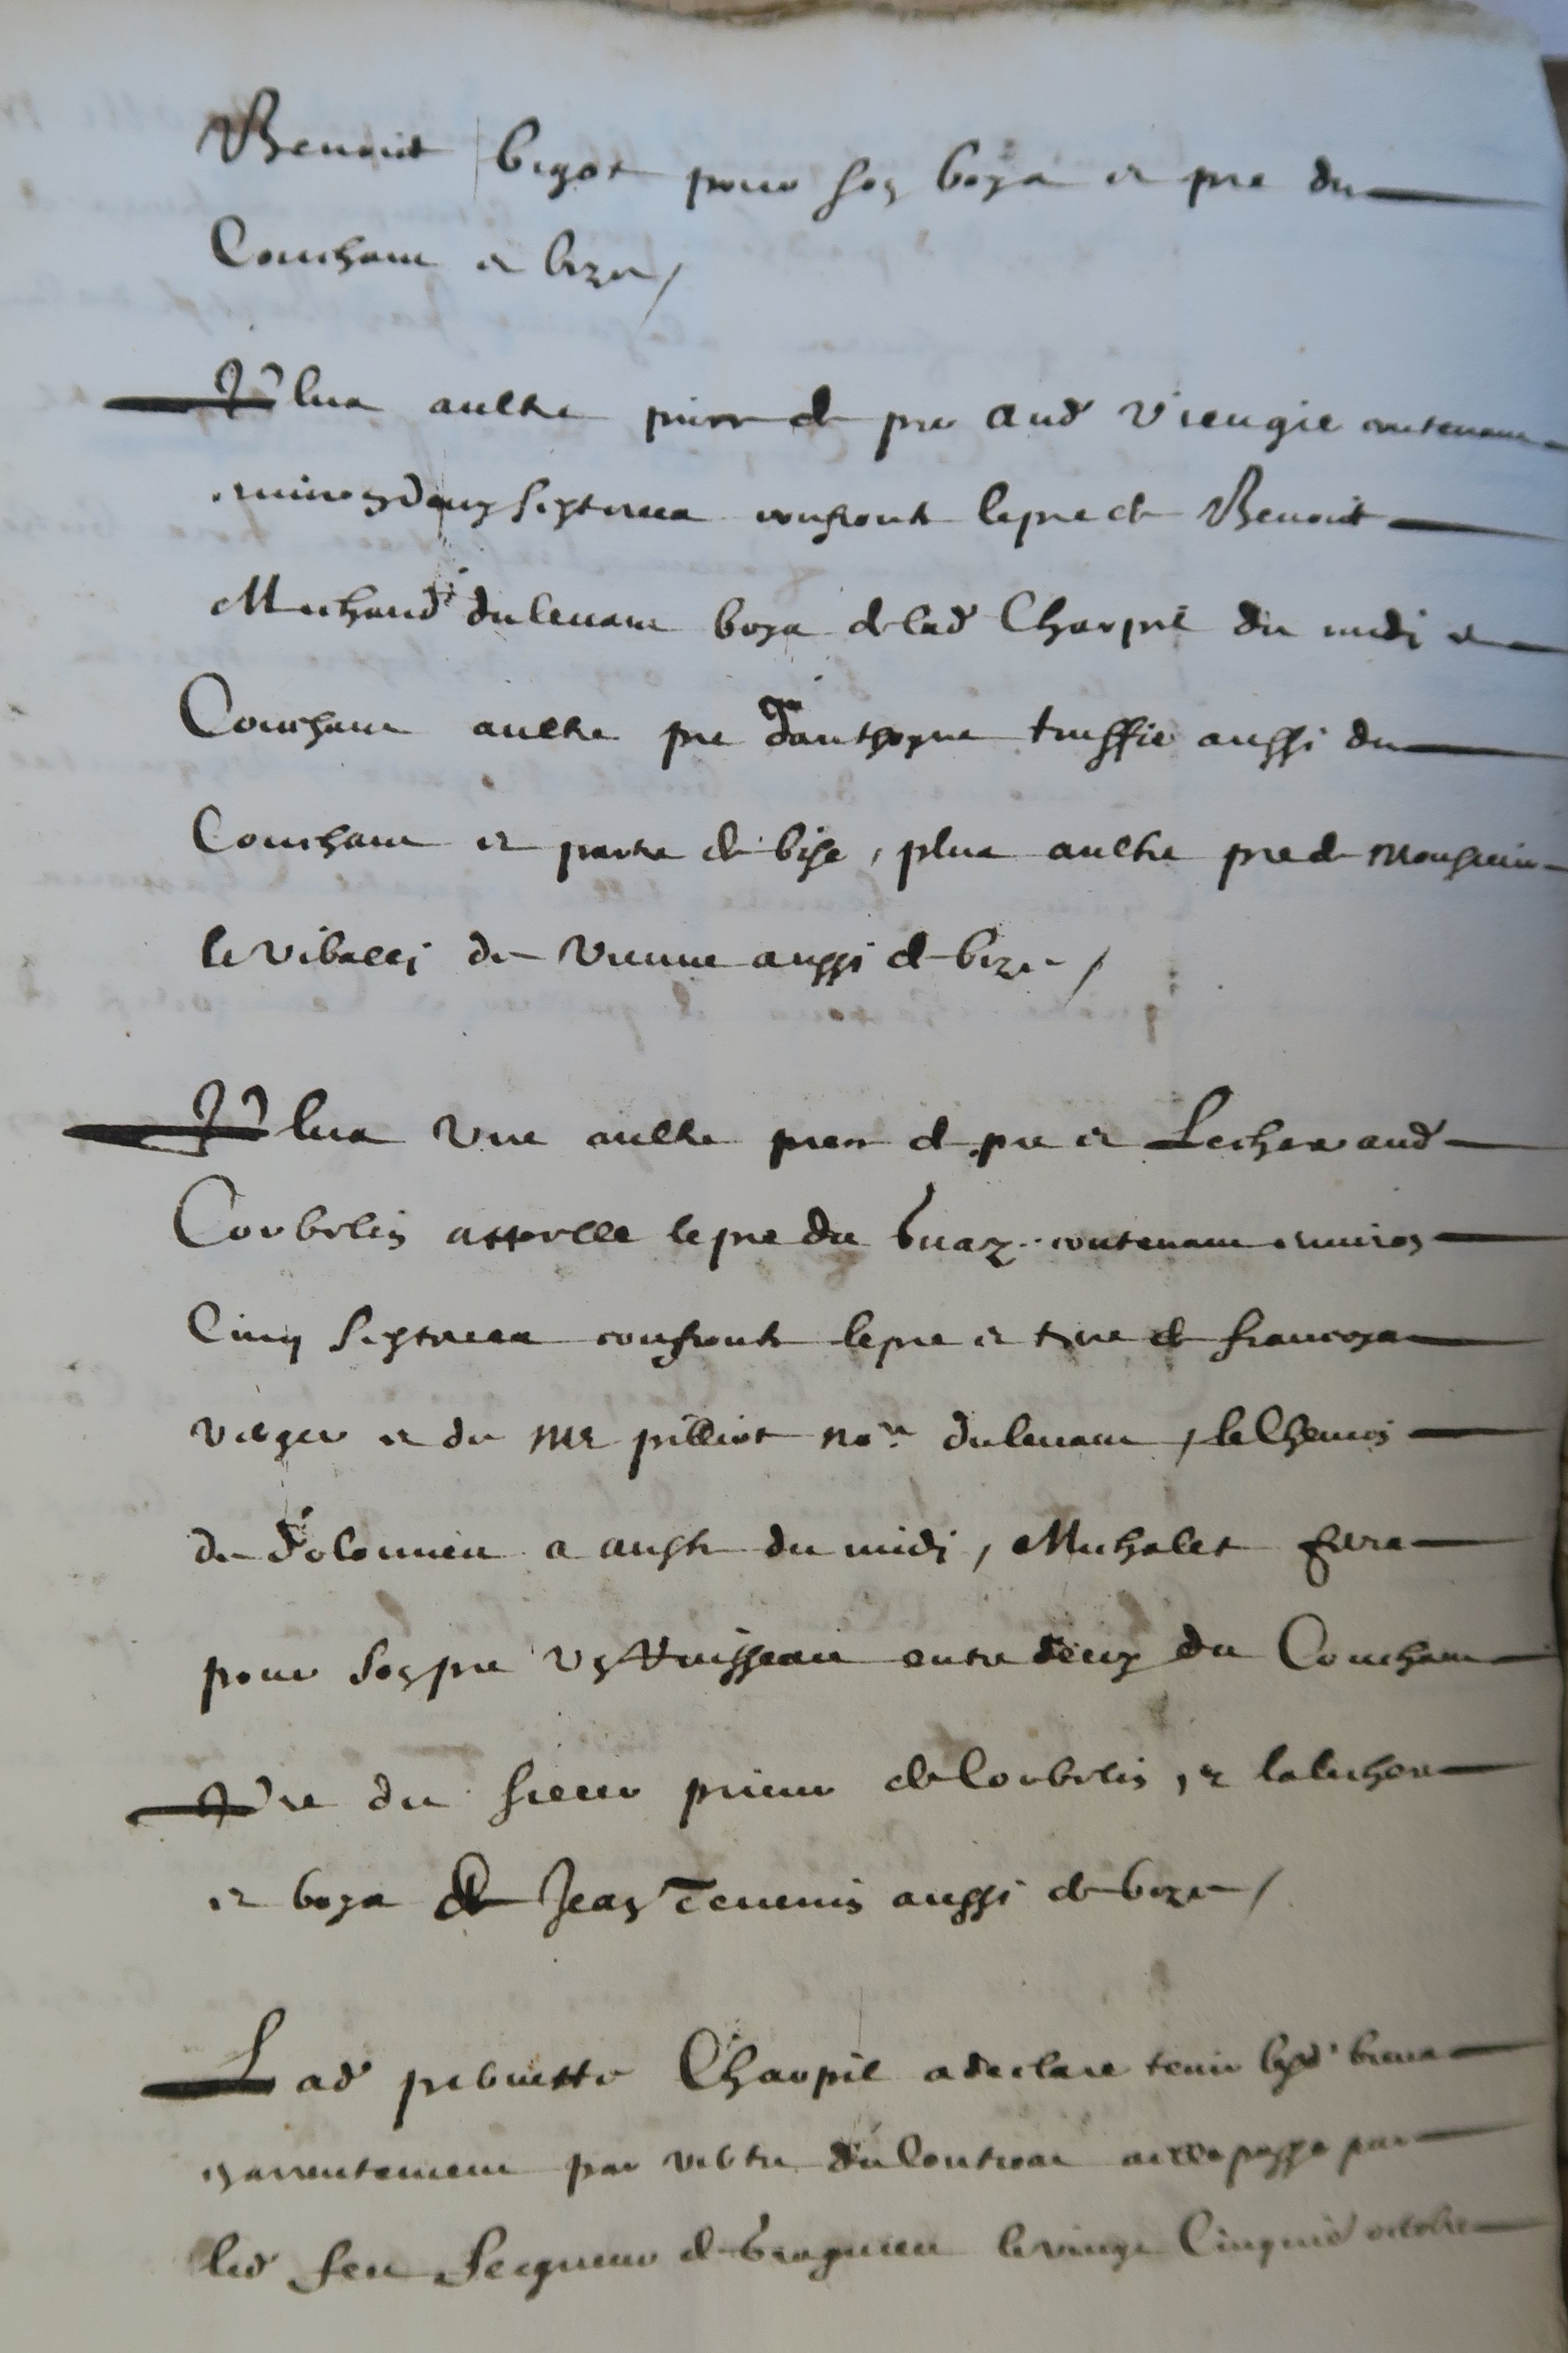 Benoist bigot pour son boys et pre du
Couchant et bize /
Plus aultre piece de pre aud Vieugie contenant
environ deux septerees confronte le pre de Benoist
Michaud du levant boys de lad Charpie du midi et
Couchant aultre pre d'anthoyne truffie aussi du
Couchant et partie de bise, plus aultre pre de monsieur
le vibally de Vienne aussi de bize /
Plus Une aultre piece de pre et Leschere aud
Corbelin appelle le pre du Guaz contenant environ
Cinq septerees confronte le pre et terre de francoys
verger et du Mr pilliot no.re du levant, le Chemin
de Dolomieu a aus du midi, Michalet
pour son pre Un Ruisseau entre deux du Couchant
Pre du sieur prieur de Corbelin, et la leschere
et boys de Jean Tevenin aussi de bize /
Lad Charpie a declare tenir lesd biens
en arrentement par vertu du Contract a elle passe par
led feu Seigneur de le vingt Cinquie octobre